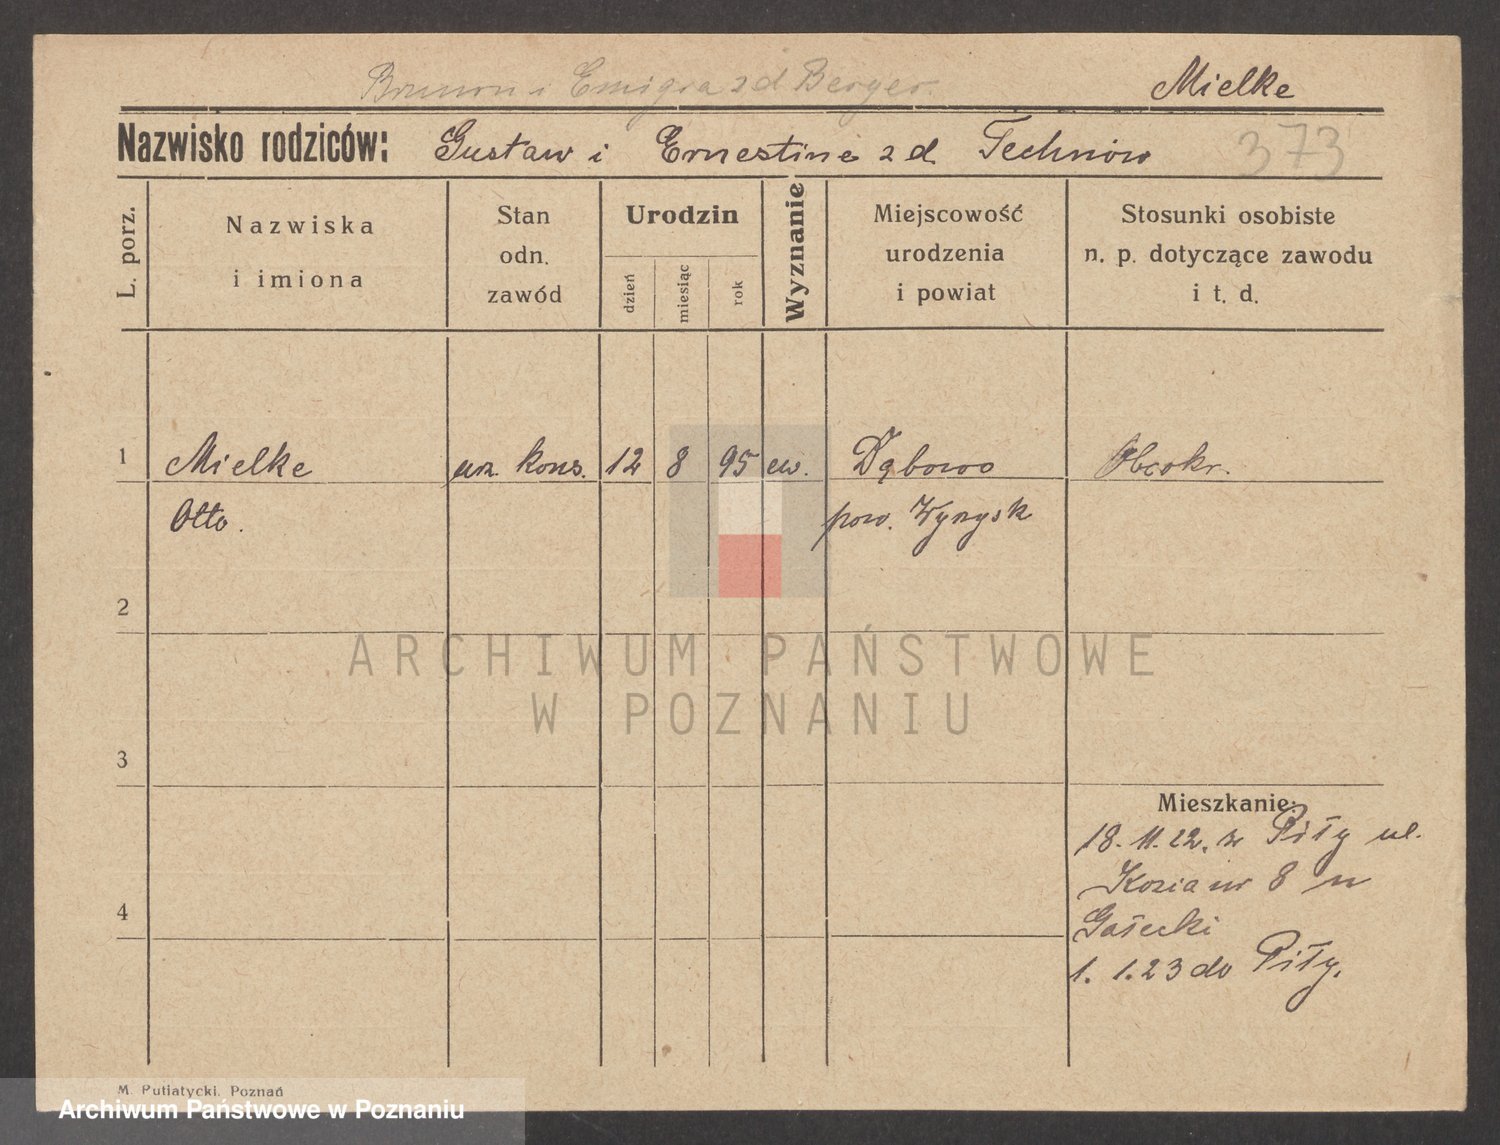 Brunon i Emigra zd Berger.
Mielke
Nazwisko rodziców: Gustaw i Ernestine zd. Technów
373
L. porz.
Nazwiska
i imiona
Stan
odn.
zawód
Urodzin
dzień
miesiąc
rok
Wyznanie
Miejscowość
urodzenia
i powiat
Stosunki osobiste
n. p. dotyczące zawodu
i t. d.
1 Mielke urz. kons. 12 8 95 ew. Dąbowo Obcokr.
Otto. pow. Wyrzysk
2
3
4
Mieszkanie:
18. 11. 22. z Piły ul.
Kozia nr 8 u
Gałecki
1. 1. 23 do Piły.
ARCHIWUM PAŃSTWOWE
W POZNANIU
M. Putiatycki, Poznań
Archiwum Państwowe w Poznaniu